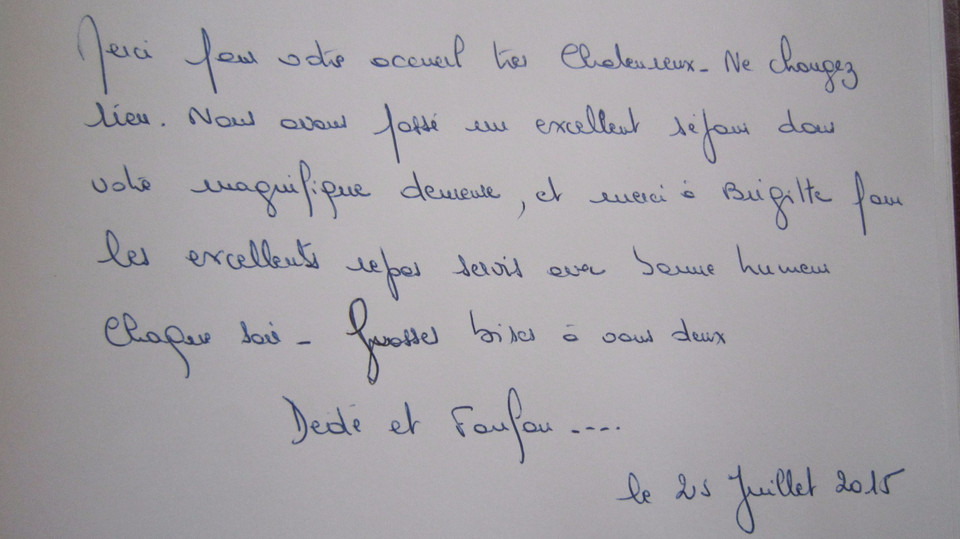 Merci pour votre accueil très Chaleureux - Ne changez
rien. Nous avons passé un excellent séjour dans
votre magnifique demeure, et merci à Brigitte pour
les excellents repas servis avec bonne humeur
Chaque soir - Grosses bises à vous deux
Dédé et Foufou ....
le 25 Juillet 2015